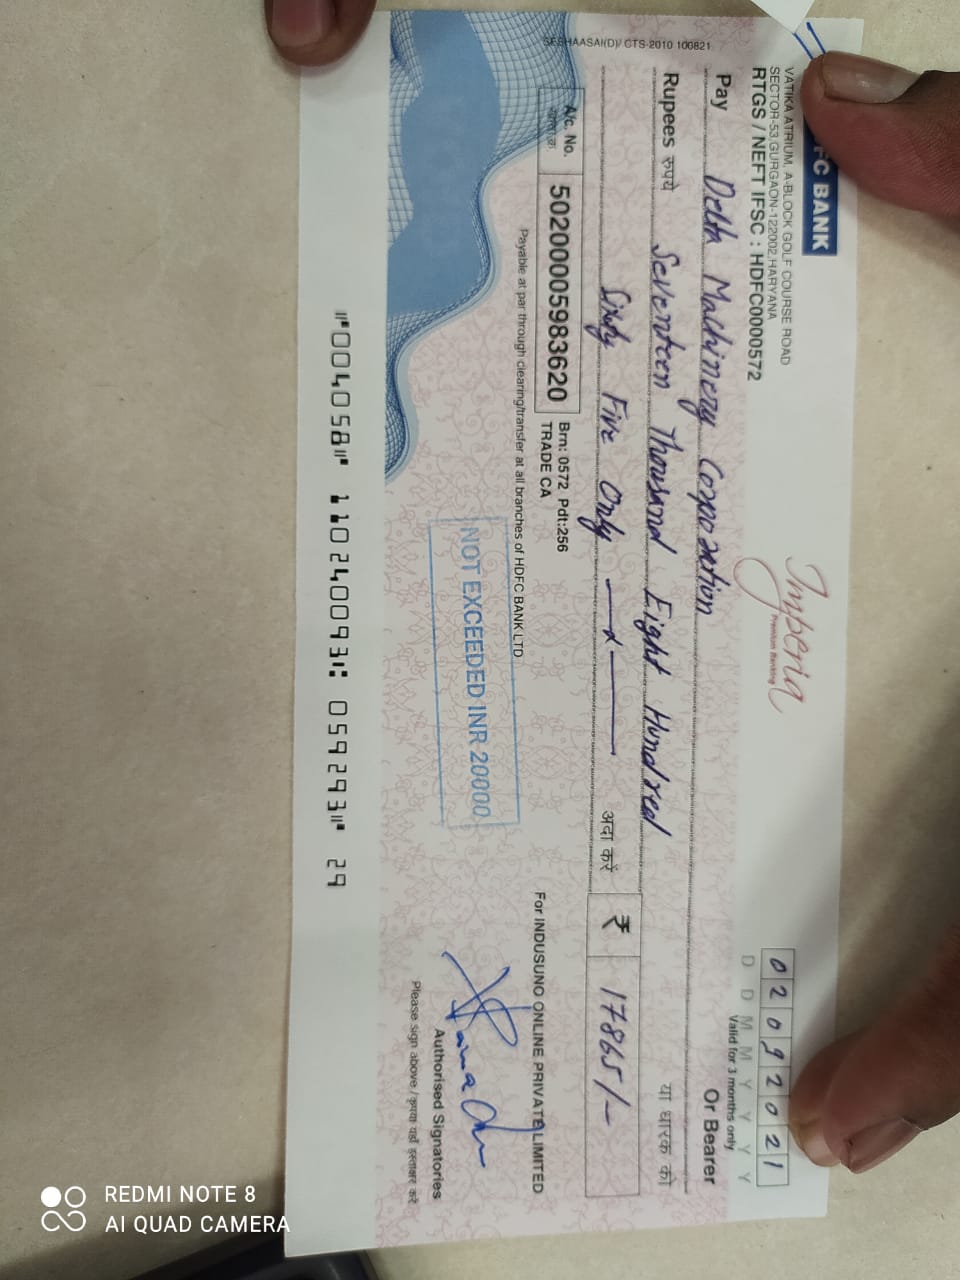 SESHAASAI(D)/ CTS-2010 100821
FC BANK
VATIKA ATRIUM, A-BLOCK GOLF COURSE ROAD
SECTOR-53,GURGAON-122002,HARYANA
RTGS / NEFT IFSC : HDFC0000572
Imperia
Premium Banking
0 2 0 9 2 0 2 1
D D M M Y Y Y Y
Valid for 3 months only
Pay Delta Machinery Corporation Or Bearer
या धारक को
Rupees रुपये Seventeen Thousand Eight Hundred
Sixty Five Only अदा करें ₹ 17865/-
A/c. No. 50200005983620
Brn: 0572 Pdt:256
TRADE CA
Payable at par through clearing/transfer at all branches of HDFC BANK LTD
For INDUSUNO ONLINE PRIVATE LIMITED
NOT EXCEEDED INR 20000
Authorised Signatories
Please sign above / कृपया यहाँ हस्ताक्षर करें
⑈004058⑈ 110240093⑆ 059293⑈ 29
REDMI NOTE 8
AI QUAD CAMERA